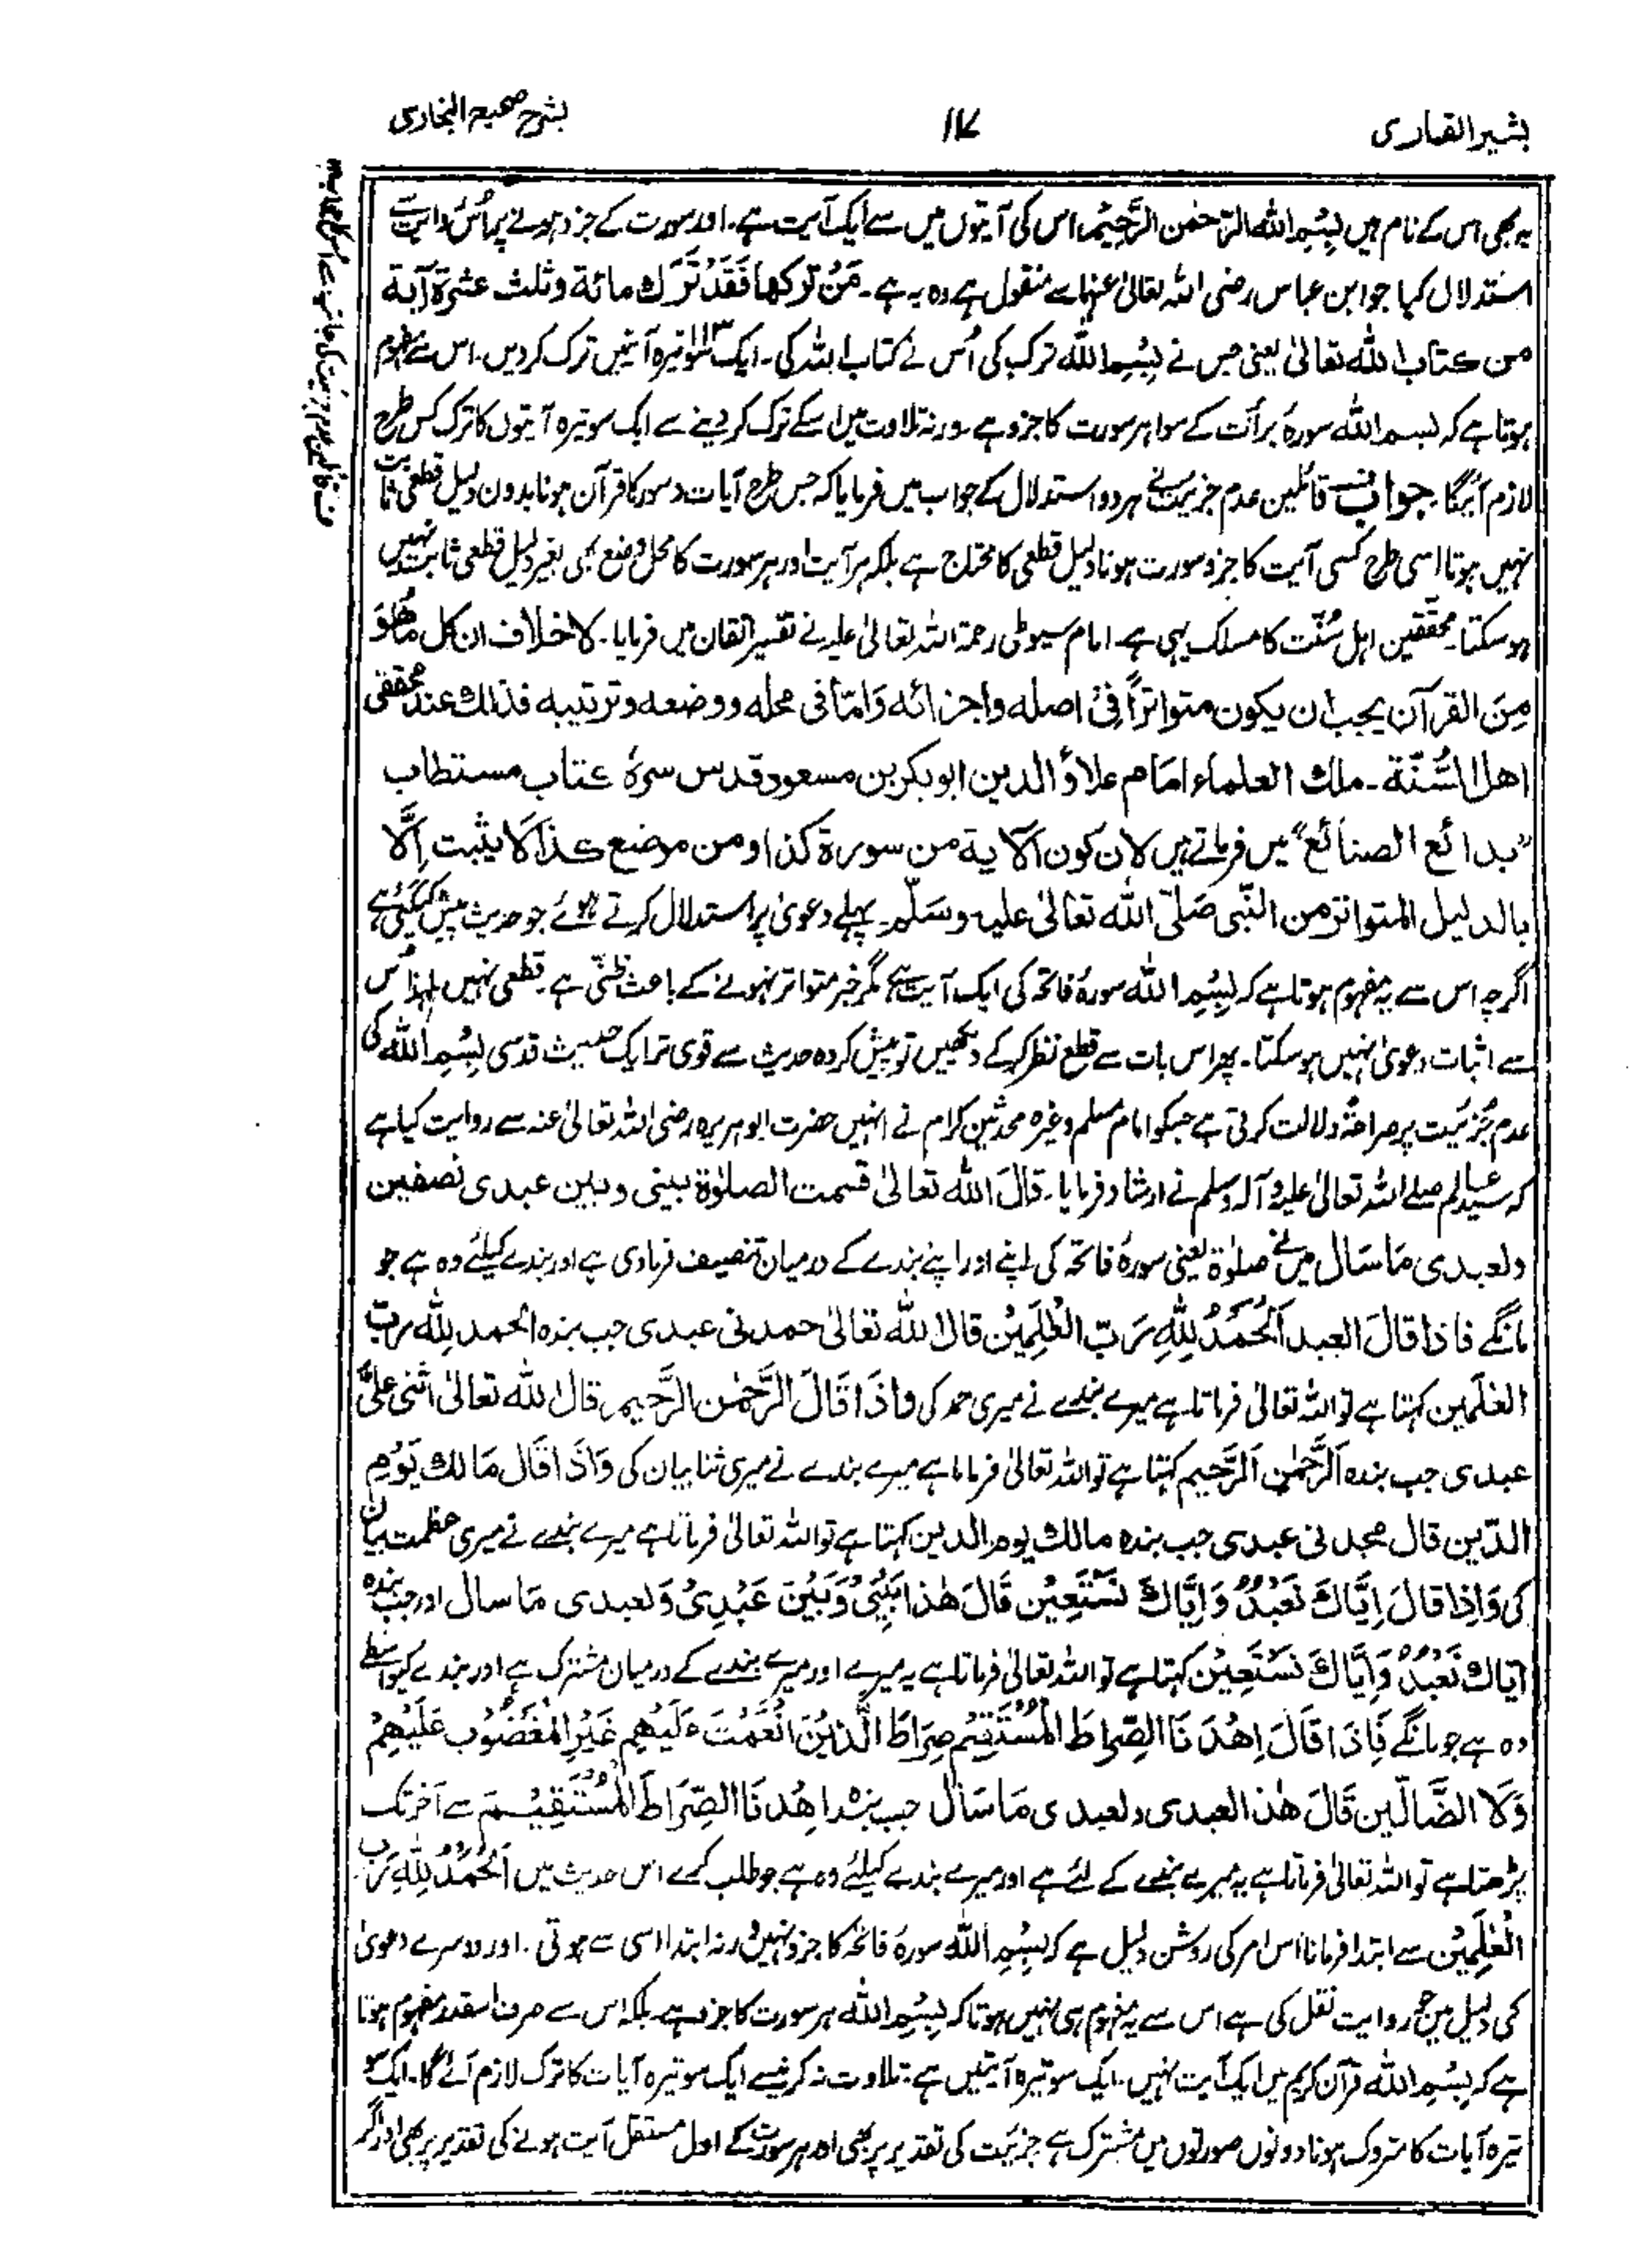 بشیر القاری
۱۱۷
بشرح صحیح البخاری
یہ بھی اس کے نام ہیں بِسْمِ اللہ الرَّحمٰن الرَّحِیْم اس کی آیتوں میں سے ایک آیت ہے۔ اور سورت کے جزو ہونے پر اُس روایت سے
استدلال کیا جو ابن عباس رضی اللہ تعالیٰ عنہما سے منقول ہے وہ یہ ہے۔ مَنْ ترکھا فَقَدْ تَرَك مائة وثلث عشرة آية
من كتاب اللہ تعالیٰ یعنی جس نے بِسْمِ اللہ ترک کی اُس نے کتاب اللہ کی۔ ایک سو تیرہ آیتیں ترک کردیں۔ اس سے مفہوم
ہوتا ہے کہ بسم اللہ سورۂ برأت کے سوا ہر سورت کا جزو ہے۔ ورنہ تلاوت میں اسکے ترک کردینے سے ایک سو تیرہ آیتوں کا ترک کس طرح
لازم آئیگا۔ جواب قائلین عدم جزئیت نے ہر دو استدلال کے جواب میں فرمایا کہ جس طرح آیات و سور کا قرآن ہونا بدون دلیل قطعی ثابت
نہیں ہوتا اسی طرح کسی آیت کا جزو سورت ہونا دلیل قطعی کا محتاج ہے بلکہ ہر آیت اور ہر سورت کا محل وضع بھی بغیر دلیل قطعی ثابت نہیں
ہوسکتا۔ محققین اہل سُنّت کا مسلک یہی ہے۔ امام سیوطی رحمۃ اللہ تعالیٰ علیہ نے تفسیر اتقان میں فرمایا۔ لاخلاف ان کل ماھُوَ
مِنَ القرآن یجب ان یکون متواتراً فی اصله واجزائه وَامّا فی محله ووضعه وترتیبه فذلك عند محققی
اهل السُّنّة۔ ملك العلماء امام علاؤ الدین ابوبکر بن مسعود قدس سرہٗ کتاب مستطاب
”بدائع الصنائع“ میں فرماتے ہیں لان کون الآیة من سورة کذا ومن موضع کذا لا یثبت اِلَّا
بالدلیل المتواتر من النّبی صَلّی اللہ تعالیٰ علیہ وسَلّم۔ پہلے دعویٰ پر استدلال کرتے ہوئے جو حدیث پیش کی گئی ہے
اگرچہ اس سے یہ مفہوم ہوتا ہے کہ بِسْمِ اللہ سورۂ فاتحہ کی ایک آیت ہے مگر خبر متواتر نہونے کے باعث ظنّی ہے۔ قطعی نہیں لہذا اُس
سے اثبات دعویٰ نہیں ہوسکتا۔ پھر اس بات سے قطع نظر کرکے دیکھیں تو پیش کردہ حدیث سے قوی تر ایک حدیث قدسی بِسْمِ اللہ کی
عدم جُزئیت پر صراحۃً دلالت کرتی ہے جسکو امام مسلم وغیرہ محدثین کرام نے انہیں حضرت ابوہریرہ رضی اللہ تعالیٰ عنہ سے روایت کیا ہے
کہ سید عالم صلے اللہ تعالیٰ علیہ وآلہ وسلم نے ارشاد فرمایا۔ قَالَ اللہ تعالیٰ قسمت الصلوٰة بینی وبین عبدی نصفین
ولعبدی مَا سَال میں نے صلوٰۃ یعنی سورۂ فاتحہ کی اپنے اور اپنے بندے کے درمیان تنصیف فرمادی ہے اور بندے کیلئے وہ ہے جو
مانگے فاذا قالَ العبد اَلْحَمْدُ لِلّٰهِ رَبّ العٰلَمِیْن قال اللہ تعالیٰ حمدنی عبدی جب بندہ الحمد لِلّٰه رب
العٰلَمین کہتا ہے تو اللہ تعالیٰ فرماتا ہے میرے بندے نے میری حمد کی واذَا قَالَ الرَّحْمٰن الرَّحیم قال اللہ تعالیٰ اثنی علیَّ
عبدی جب بندہ اَلرَّحمٰن الرَّحیم کہتا ہے تو اللہ تعالیٰ فرماتا ہے میرے بندے نے میری ثنا بیان کی وَاذَا قَال مَالك یَوْم
الدّین قال مجدنی عبدی جب بندہ مالك یوم الدین کہتا ہے تو اللہ تعالیٰ فرماتا ہے میرے بندے نے میری عظمت بیان
کی وَاِذا قالَ اِیَّاكَ نَعْبُدُ وَاِیَّاكَ نَسْتَعِیْن قَالَ هٰذا بَیْنِیْ وَبَیْنَ عَبْدِیْ وَلعبدی مَا سال اور جب بندہ
اِیّاك نَعْبُدُ وَاِیَّاكَ نَسْتَعِیْن کہتا ہے تو اللہ تعالیٰ فرماتا ہے یہ میرے اور میرے بندے کے درمیان مشترک ہے اور بندے کیواسطے
وہ ہے جو مانگے فَاِذَا قَالَ اِهْدِنَا الصِّراطَ الْمُسْتَقِیْم صِرَاطَ الَّذِیْنَ اَنْعَمْتَ عَلَیْهِم غَیْرِ الْمَغْضُوْب عَلَیْهِمْ
وَلَا الضَّالّین قَالَ هٰذا لعبدی ولعبدی مَا سَال جب بندہ اِهْدِنَا الصِّرَاطَ الْمُسْتَقِیْم سے آخر تک
پڑھتا ہے تو اللہ تعالیٰ فرماتا ہے یہ میرے بندے کے لئے ہے اور میرے بندے کیلئے وہ ہے جو طلب کرے اس حدیث میں اَلْحَمْدُ لِلّٰهِ رَب
الْعٰلَمِیْن سے ابتدا فرمانا اس امر کی روشن دلیل ہے کہ بِسْمِ اللہ سورۂ فاتحہ کا جزو نہیں ورنہ ابتدا اسی سے ہوتی۔ اور دوسرے دعویٰ
کی دلیل میں جو روایت نقل کی ہے اس سے یہ مفہوم ہی نہیں ہوتا کہ بِسْمِ اللہ ہر سورت کا جزو ہے۔ بلکہ اس سے صرف اسقدر مفہوم ہوتا
ہے کہ بِسْمِ اللہ قرآن کریم میں ایک آیت نہیں۔ ایک سو تیرہ آیتیں ہے: تلاوت نہ کرنیسے ایک سو تیرہ آیات کا ترک لازم آئے گا۔ ایک سو
تیرہ آیات کا متروک ہونا دونوں صورتوں میں مشترک ہے جزئیت کی تقدیر پر بھی اور ہر سورت کے اول مستقل آیت ہونے کی تقدیر پر بھی اور اگر